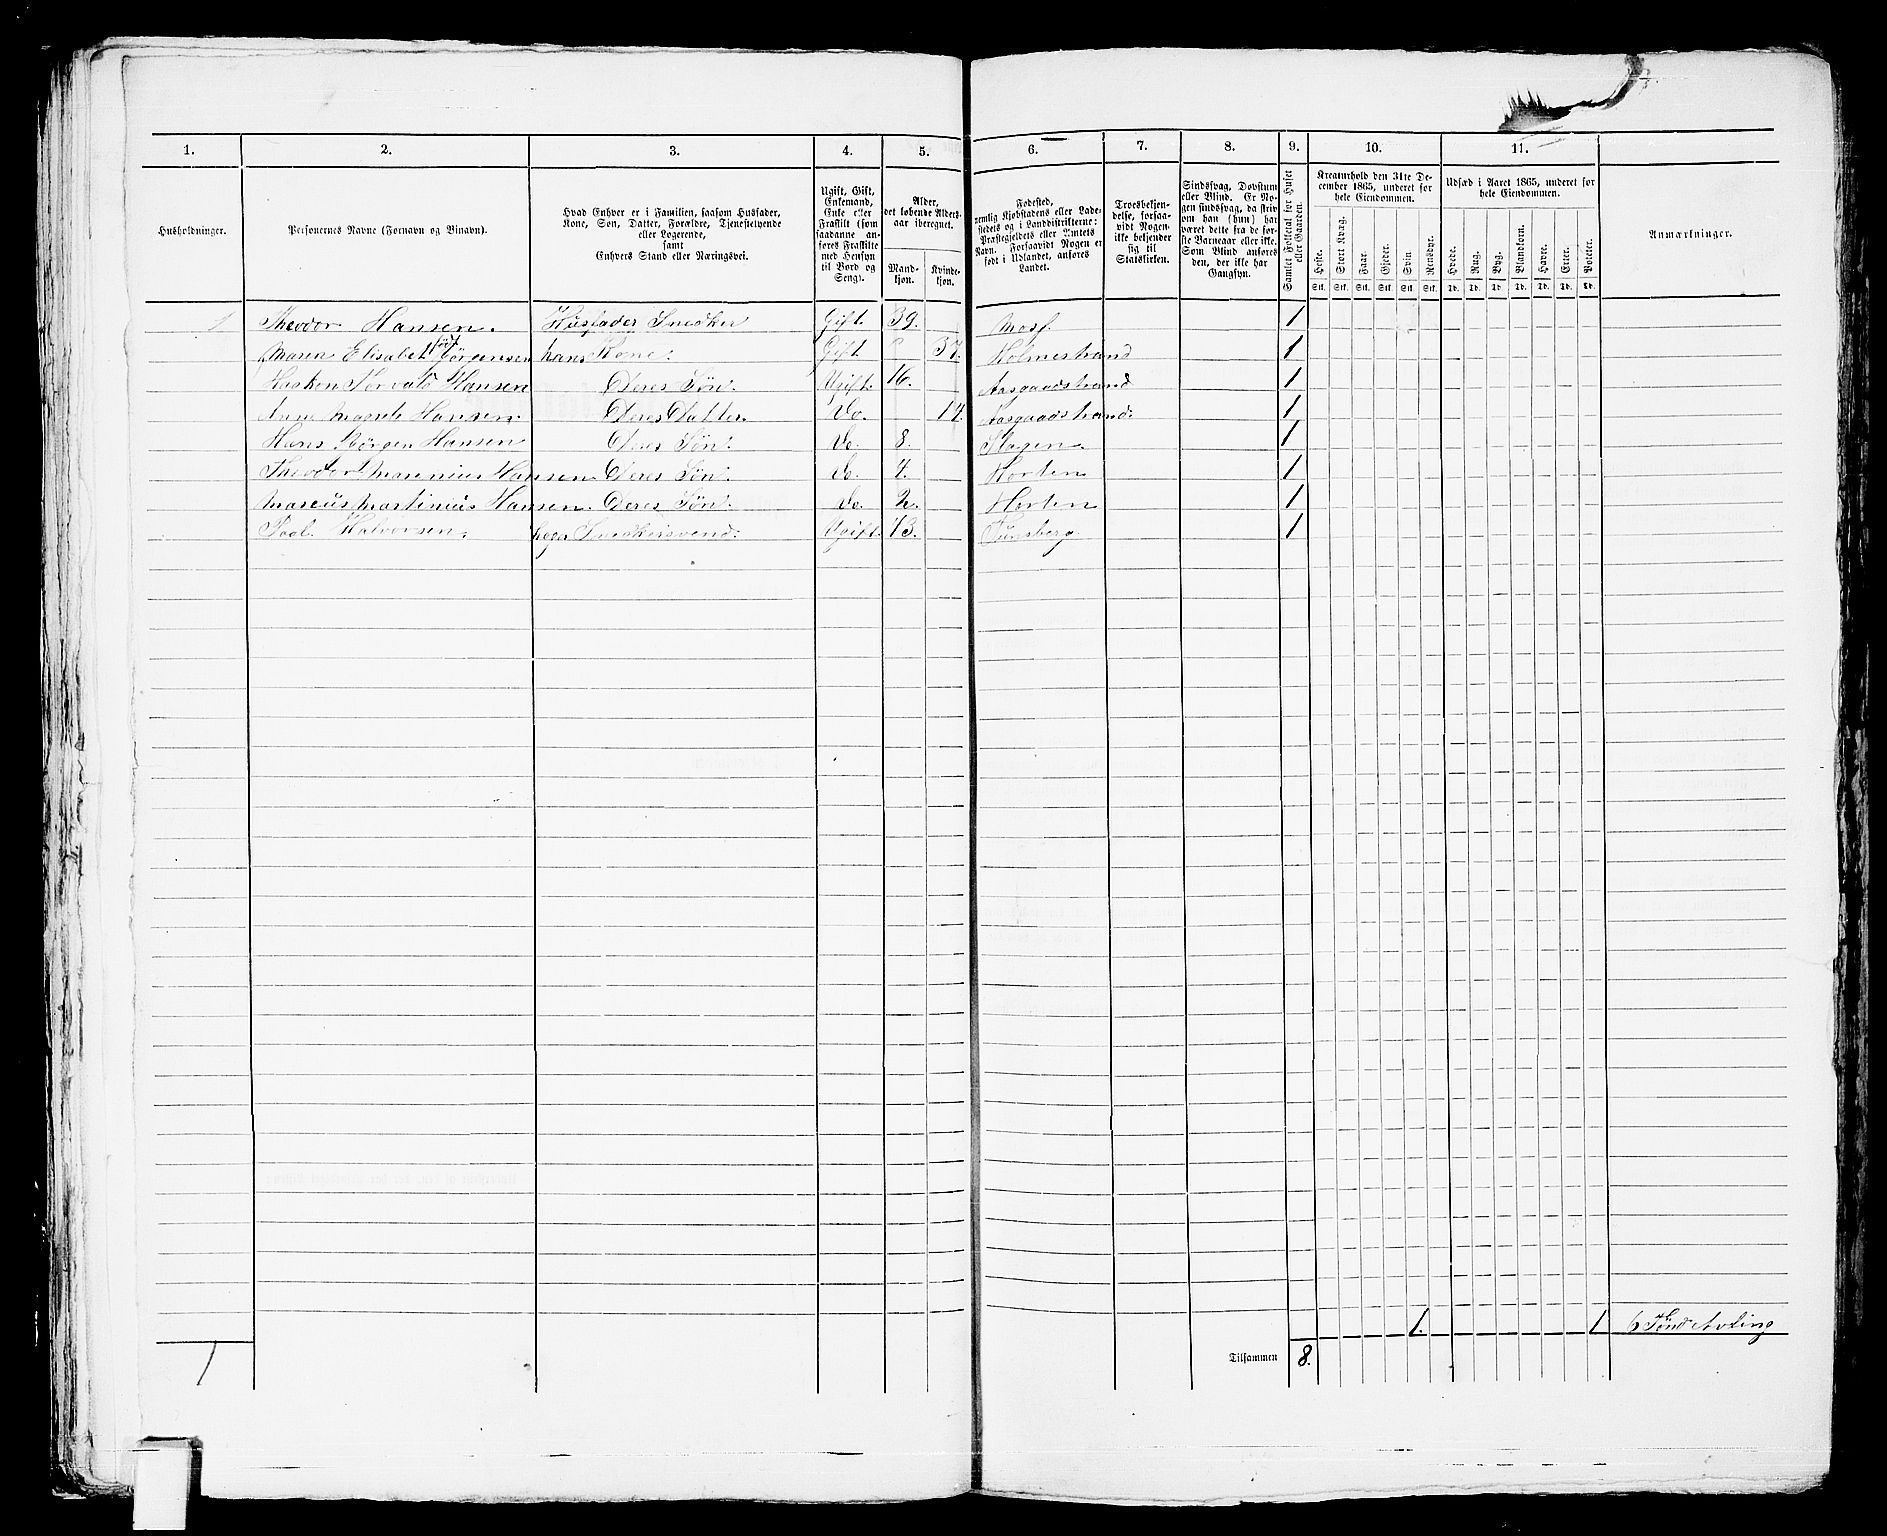 1. 2. 3. 4. 5. 6. 7. 8. 9. 10. 11.
Husholdninger.
Personernes Navne (Fornavn og Binavn).
Hvad Enhver er i Familien, saasom Husfader,
Kone, Søn, Datter, Forældre, Tjenestetyende
eller Logerende,
samt
Enhvers Stand eller Næringsvei.
Ugift, Gift,
Enkemand,
Enke eller
Fraskilt (som
saadanne an-
føres Fraskilte
med Hensyn
til Bord og
Seng).
Alder,
det løbende Alders-
aar iberegnet.
Mand-
kjøn.
Kvinde-
kjøn.
Fødested,
nemlig Kjøbstadens eller Lade-
stedets og i Landdistrikterne:
Præstegjeldets eller Amtets
Navn. Forsaavidt Nogen er
født i Udlandet, anføres
Landet.
Troesbekjen-
delse, forsaa-
vidt Nogen
ikke bekjender
sig til
Statskirken.
Sindssvag, Døvstum
eller Blind. Er No-
gen sindssvag, da skriv
om han (hun) har
været dette fra de før-
ste Barneaar eller ikke.
Som Blind anføres
den, der ikke har
Gangsyn.
Samlet Folketal for Huset
eller Gaarden.
Kreaturhold den 31te De-
cember 1865, underet for
hele Eiendommen.
Heste. Stort Kvæg. Faar. Gjeder. Svin Rensdyr.
Stk. Stk. Stk. Stk. Stk. Stk.
Udsæd i Aaret 1865, underet for
hele Eiendommen.
Hvede. Rug. Byg. Blandkorn. Havre. Erter. Poteter.
Td. Td. Td. Td. Td. Td. Td.
Anmærkninger.
1 Theodor Hansen. Husfader Snedker Gift. 39. Moss. 1
Maren Elisabet født Jørgensen hans Kone. Gift 37. Holmestrand 1
Haakon Torvald Hansen Deres Søn. Ugift. 16. Aasgaardstrand 1
Anne Magrete Hansen. Deres Datter. Do. 14. Aasgaardstrand. 1
Hans Jørgen Hansen Deres Søn. Do. 8. Slagen 1
Theodor Marenius Hansen Deres Søn. Do. 4. Horten 1
Marcus Martinius Hansen. Deres Søn. Do. 2. Horten 1
Paal Halvorsen. Loger Snedkersvend. Ugift. 43. Tunsberg. 1
1. 1 6 Tønd Avling
1 Tilsammen 8.